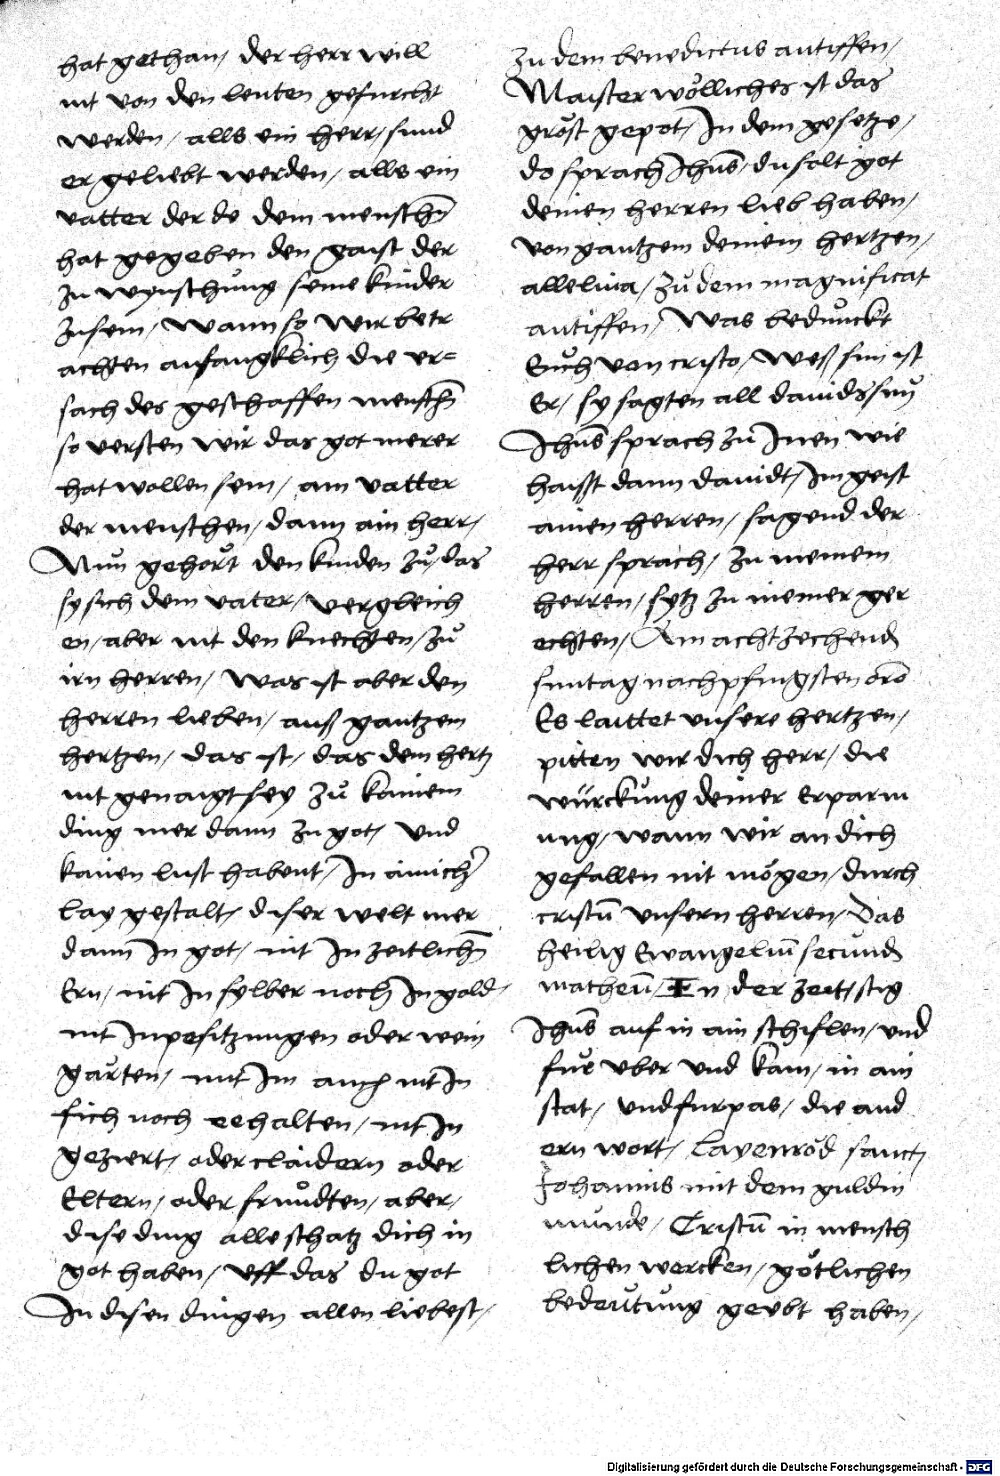 hat gethan / der herr will
nit von den leuten gefurcht
werden / alls ein herr / sund
er geliebt werden / alls ein
vatter der do dem menschn̄
hat gegeben den gaist der
zu wynschung seine kinder
zu sein / Wann so wir betr
achten anfangklich die vr=
sach des geschaffen menschn̄
so versten wir das got merer
hat wollen sein / ain vatter
der menschen / dann ain herr /
Nun gehort den kinden zů / das
sy sich dem vater / vergleich
en / aber nit den knechten / zů
irn herren / Was ist aber den
herren lieben / auß gantzem
hertzen / das ist / das dem hertz
nit genaigt sey zů kainem
ding mer dann zu got / vnd
kainen lust habent / In ainicher
lay gestalt / diser welt mer
dann In got / nit In zeitlichn̄
Ern / nit In sylber noch In gold /
nit In pesitzungen oder wein
garten / nit Im auch nit In
fich noch gehalten / nit In
geziert / oder claidern oder
Eltern / oder frundten / aber /
dise ding alle schatz dich in
got haben / vff das du got
In disen dingen allen liebest /
zu dem benedictus antiffen /
Maister wölliches ist das
gröst gepot / In dem gesetze /
do sprach Ihus̄ / du solt got
deinen herren lieb haben /
von gantzem deinem hertzen /
alleluia / zů dem magnificat
antiffen / Was beduncket
Euch von cristo / Weß sun ist
Er / sy sagten all dauids sun
Ihus̄ sprach zů Inen wie
haisst dann dauidt / Im geist
ainen herren / sagend der
herr sprach / zu meinem
herren / sytz zu meiner ger
echten / Am achtzechend
suntag nach pfingsten oro̅
Es laittet vnsere hertzen /
pitten wir dich herr / die
würckung deiner Erparm
ung / wann wir an dich
gefallen nit mögen / durch
cristū vnsern herren / Das
heilig Ewangeliū secund
matheū / In der zeet / stig
Ihus̄ auf in ain schiflen / vnd
fůr vber vnd kam / in ain
stat / vnd furpas / die and
ern wort / Layenröd sanct
Johannis mit dem guldin
munde / Cristū in mensch
lichen wercken / götlichen
bedeutung geebt haben /
Digitalisierung gefördert durch die Deutsche Forschungsgemeinschaft - DFG